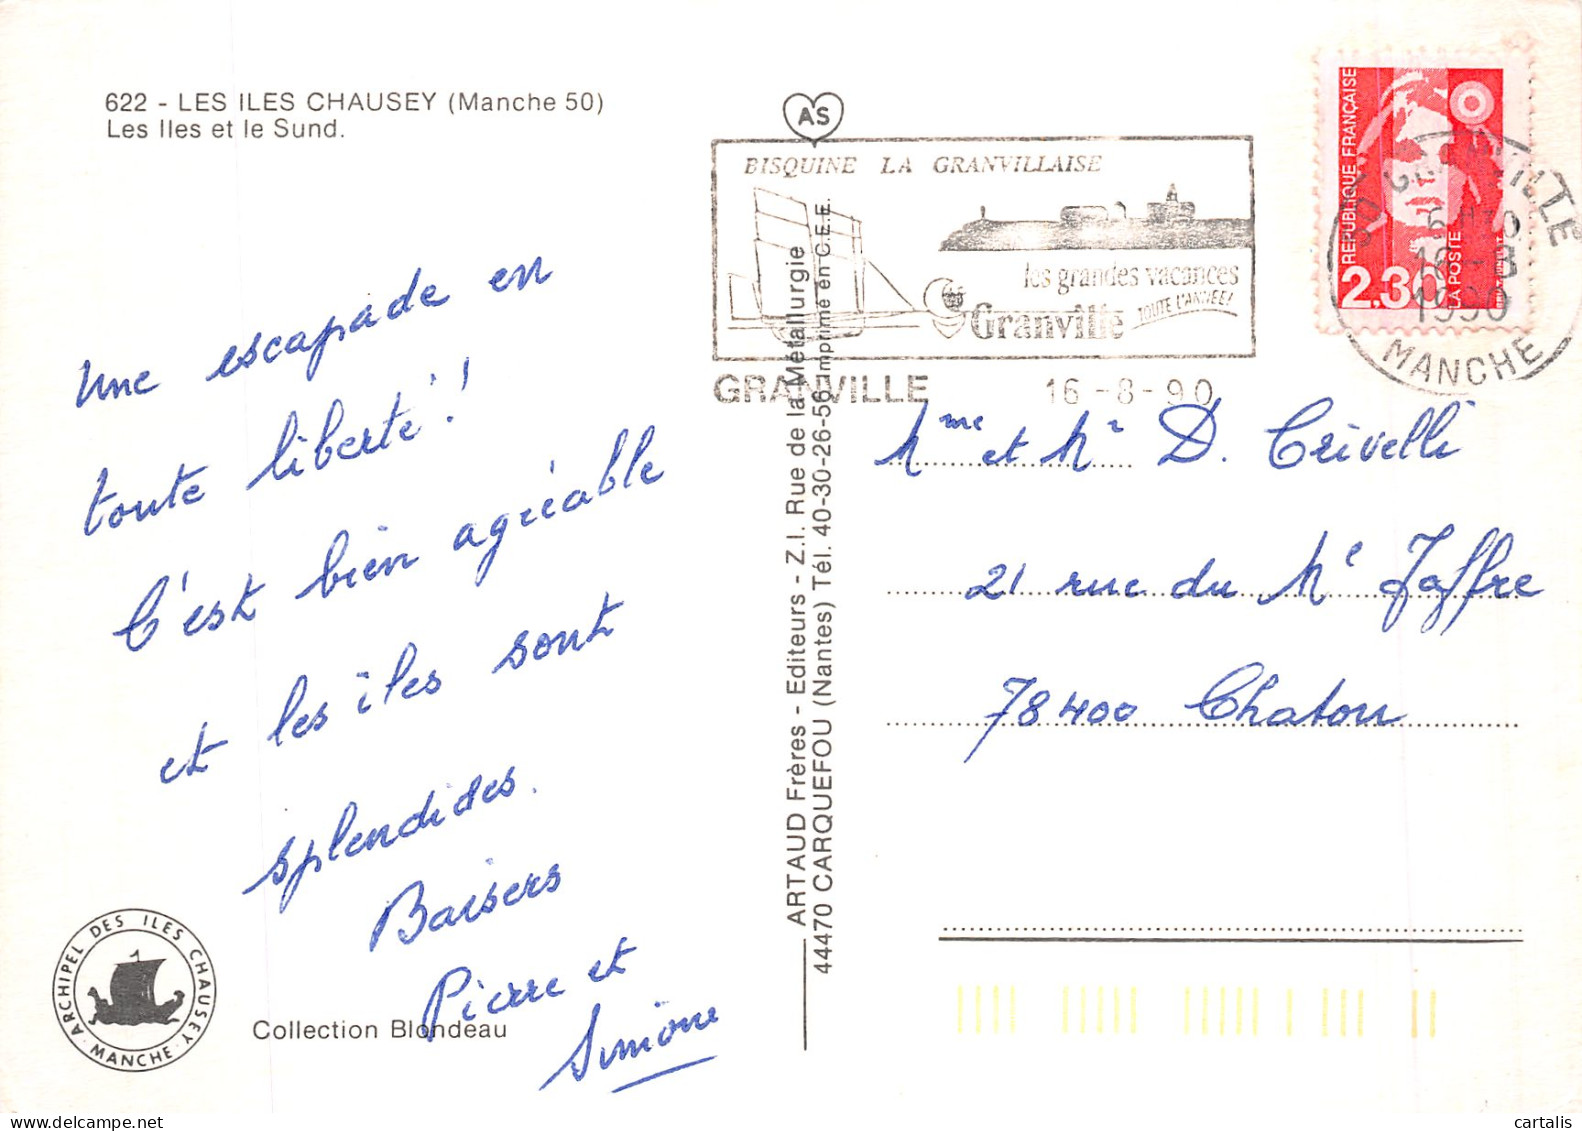 622 - LES ILES CHAUSEY (Manche 50)
Les Iles et le Sund.
Une escapade en
toute liberté !
C'est bien agréable
et les îles sont
splendides.
Baisers
Pierre et
Simone
ARCHIPEL DES ILES CHAUSEY
· MANCHE ·
Collection Blondeau
ARTAUD Frères - Editeurs - Z.I. Rue de la Métallurgie
44470 CARQUEFOU (Nantes) Tél. 40-30-26-56 Imprimé en C.E.E.
AS
BISQUINE LA GRANVILLAISE
les grandes vacances
TOUTE L'ANNEE!
Granville
GRANVILLE 16-8-90
REPUBLIQUE FRANÇAISE
2,30
LA POSTE
1990
MANCHE
Mme et Mr D. Crivelli
21 rue du Ml Joffre
78400 Chatou